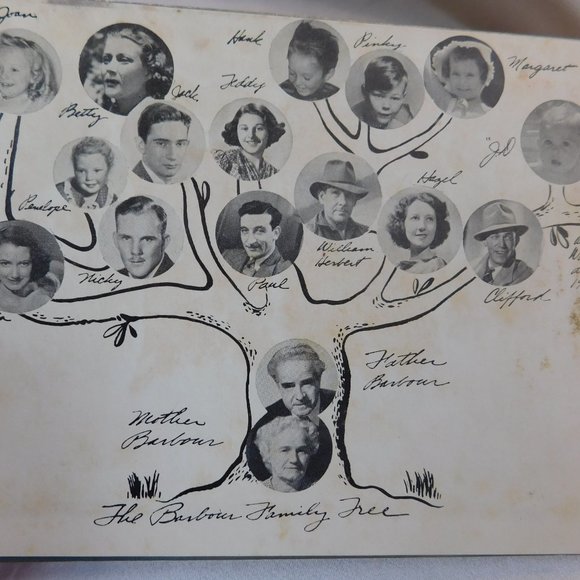 Joan
Hank
Pinky
Margaret
Betty
Jack
Teddy
"JD
Penelope
Hazel
William
Herbert
Nicky
Paul
Clifford
Father
Barbour
Mother
Barbour
The Barbour Family Tree